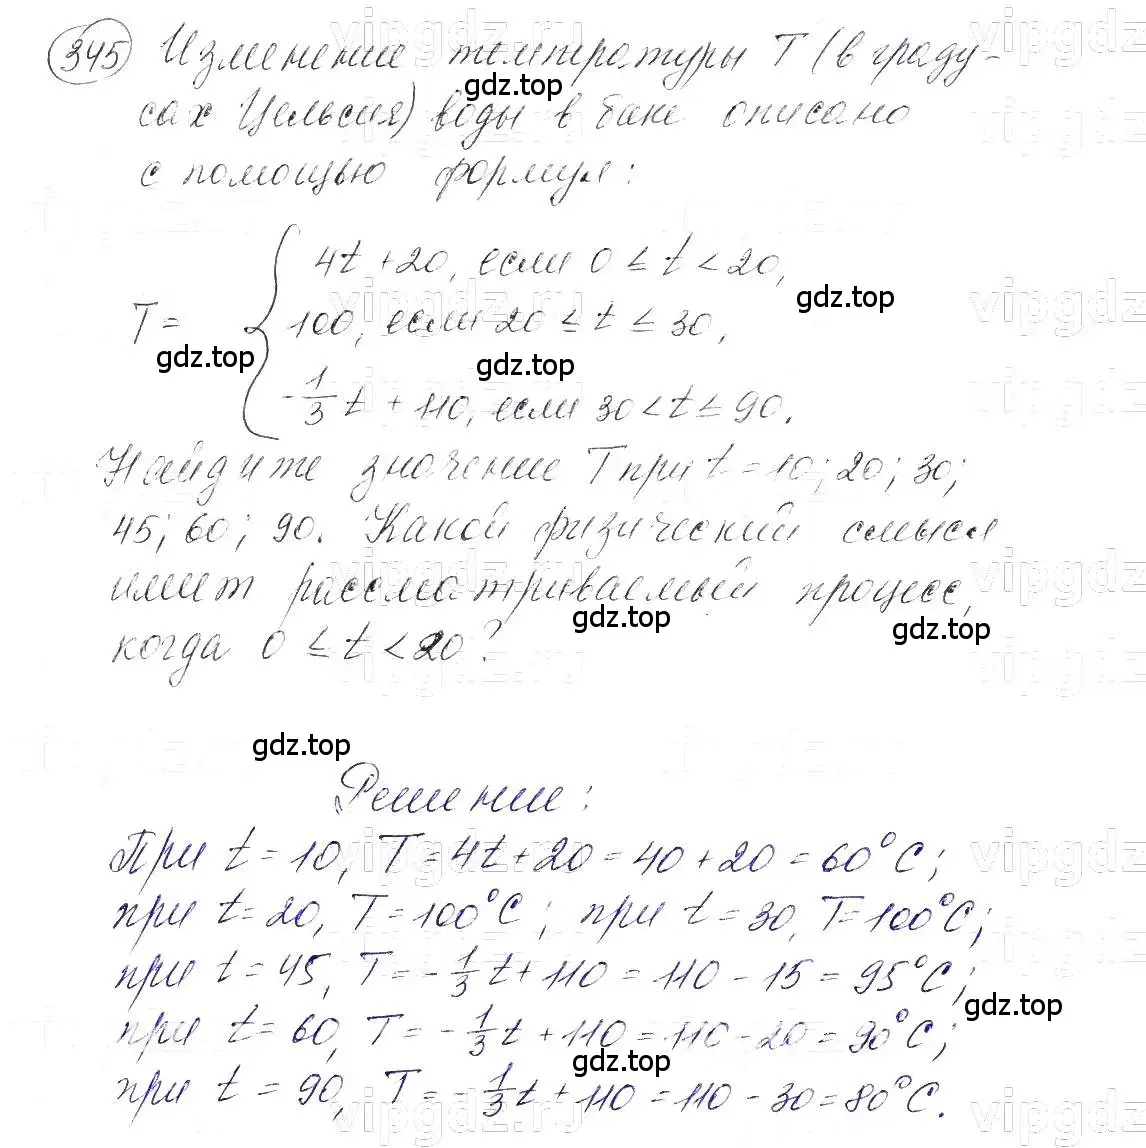 345 Изменение температуры T (в граду-
сах Цельсия) воды в баке описано
с помощью формул:
T = { 4t + 20, если 0 ≤ t < 20,
100, если 20 ≤ t ≤ 30,
-1/3 t + 110, если 30 < t ≤ 90.
Найдите значение T при t = 10; 20; 30;
45; 60; 90. Какой физический смысл
имеет рассматриваемый процесс,
когда 0 ≤ t < 20?
Решение:
При t = 10, T = 4t + 20 = 40 + 20 = 60°C;
при t = 20, T = 100°C; при t = 30, T = 100°C;
при t = 45, T = -1/3 t + 110 = 110 - 15 = 95°C;
при t = 60, T = -1/3 t + 110 = 110 - 20 = 90°C;
при t = 90, T = -1/3 t + 110 = 110 - 30 = 80°C.
gdz.top
gdz.top
gdz.top
gdz.top
gdz.top
gdz.top
gdz.top
gdz.top
gdz.top
vipgdz.ru